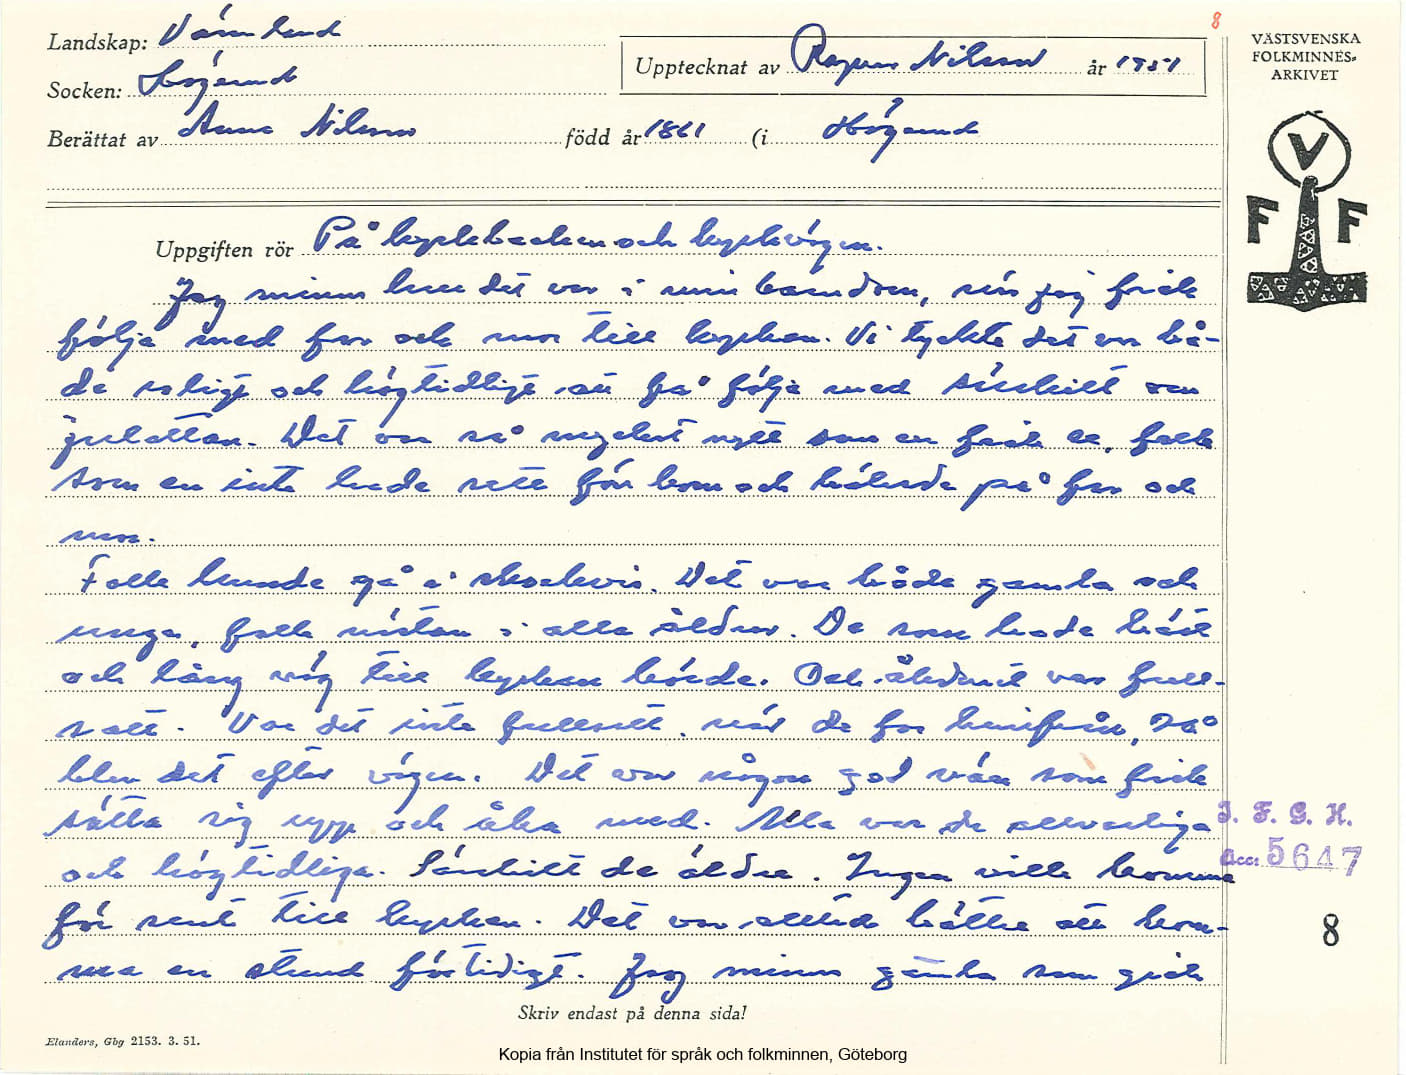 8
Landskap: Värmland
Socken: Högerud
Upptecknat av Ragnar Nilsson år 1951
VÄSTSVENSKA
FOLKMINNES-
ARKIVET
Berättat av Anna Nilsson född år 1861 (i Högerud
V
F F
Uppgiften rör På kyrkbacken och kyrkvägen.
Jag minns hur det var i min barndom, när jag fick
följa med far och mor till kyrkan. Vi tyckte det var bå-
de roligt och högtidligt att få följa med särskilt om
julottan. Det var så mycket nytt som en fick se, folk
som en inte hade sett för kom och hälsade på far och
mor.
Folk kunde gå i skockvis. Det var både gamla och
unga, folk nästan i alla åldrar. De som hade häst
och lång väg till kyrkan körde. Och åkdonet var full-
satt. Var det inte fullsatt, när de for hemifrån, så
blev det efter vägen. Det var någon god vän som fick
sätta sig upp och åka med. Alla var de allvarliga
och högtidliga. Särskilt de äldre. Ingen ville komma
för sent till kyrkan. Det var alltid bättre att kom-
ma en stund för tidigt. Jag minns gamla som gick
I. F. G. H.
Acc: 5647
8
Skriv endast på denna sida!
Elanders, Gbg 2153. 3. 51.
Kopia från Institutet för språk och folkminnen, Göteborg